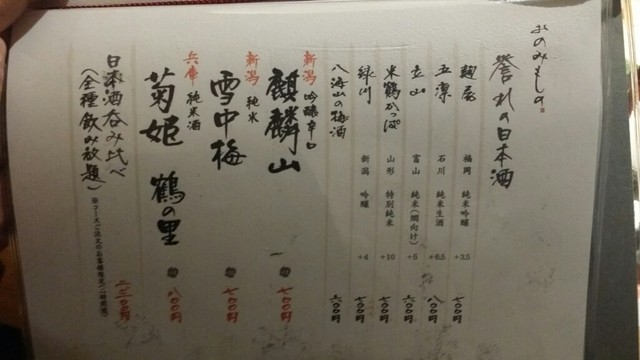 おのみもの
誉れの日本酒
麹屋 福岡 純米吟醸 +3.5 七〇〇円
五凛 石川 純米生酒 +6.5 八〇〇円
立山 富山 純米(燗向け) +5 六〇〇円
米鶴かっぱ 山形 特別純米 +10 七〇〇円
緑川 新潟 吟醸 +4 七〇〇円
八海山の梅酒 六〇〇円
新潟 吟醸辛口 麒麟山 七〇〇円
新潟 純米 雪中梅 七〇〇円
兵庫 純米酒 菊姫 鶴の里 八〇〇円
日本酒呑み比べ
(全種飲み放題)
二三〇〇円